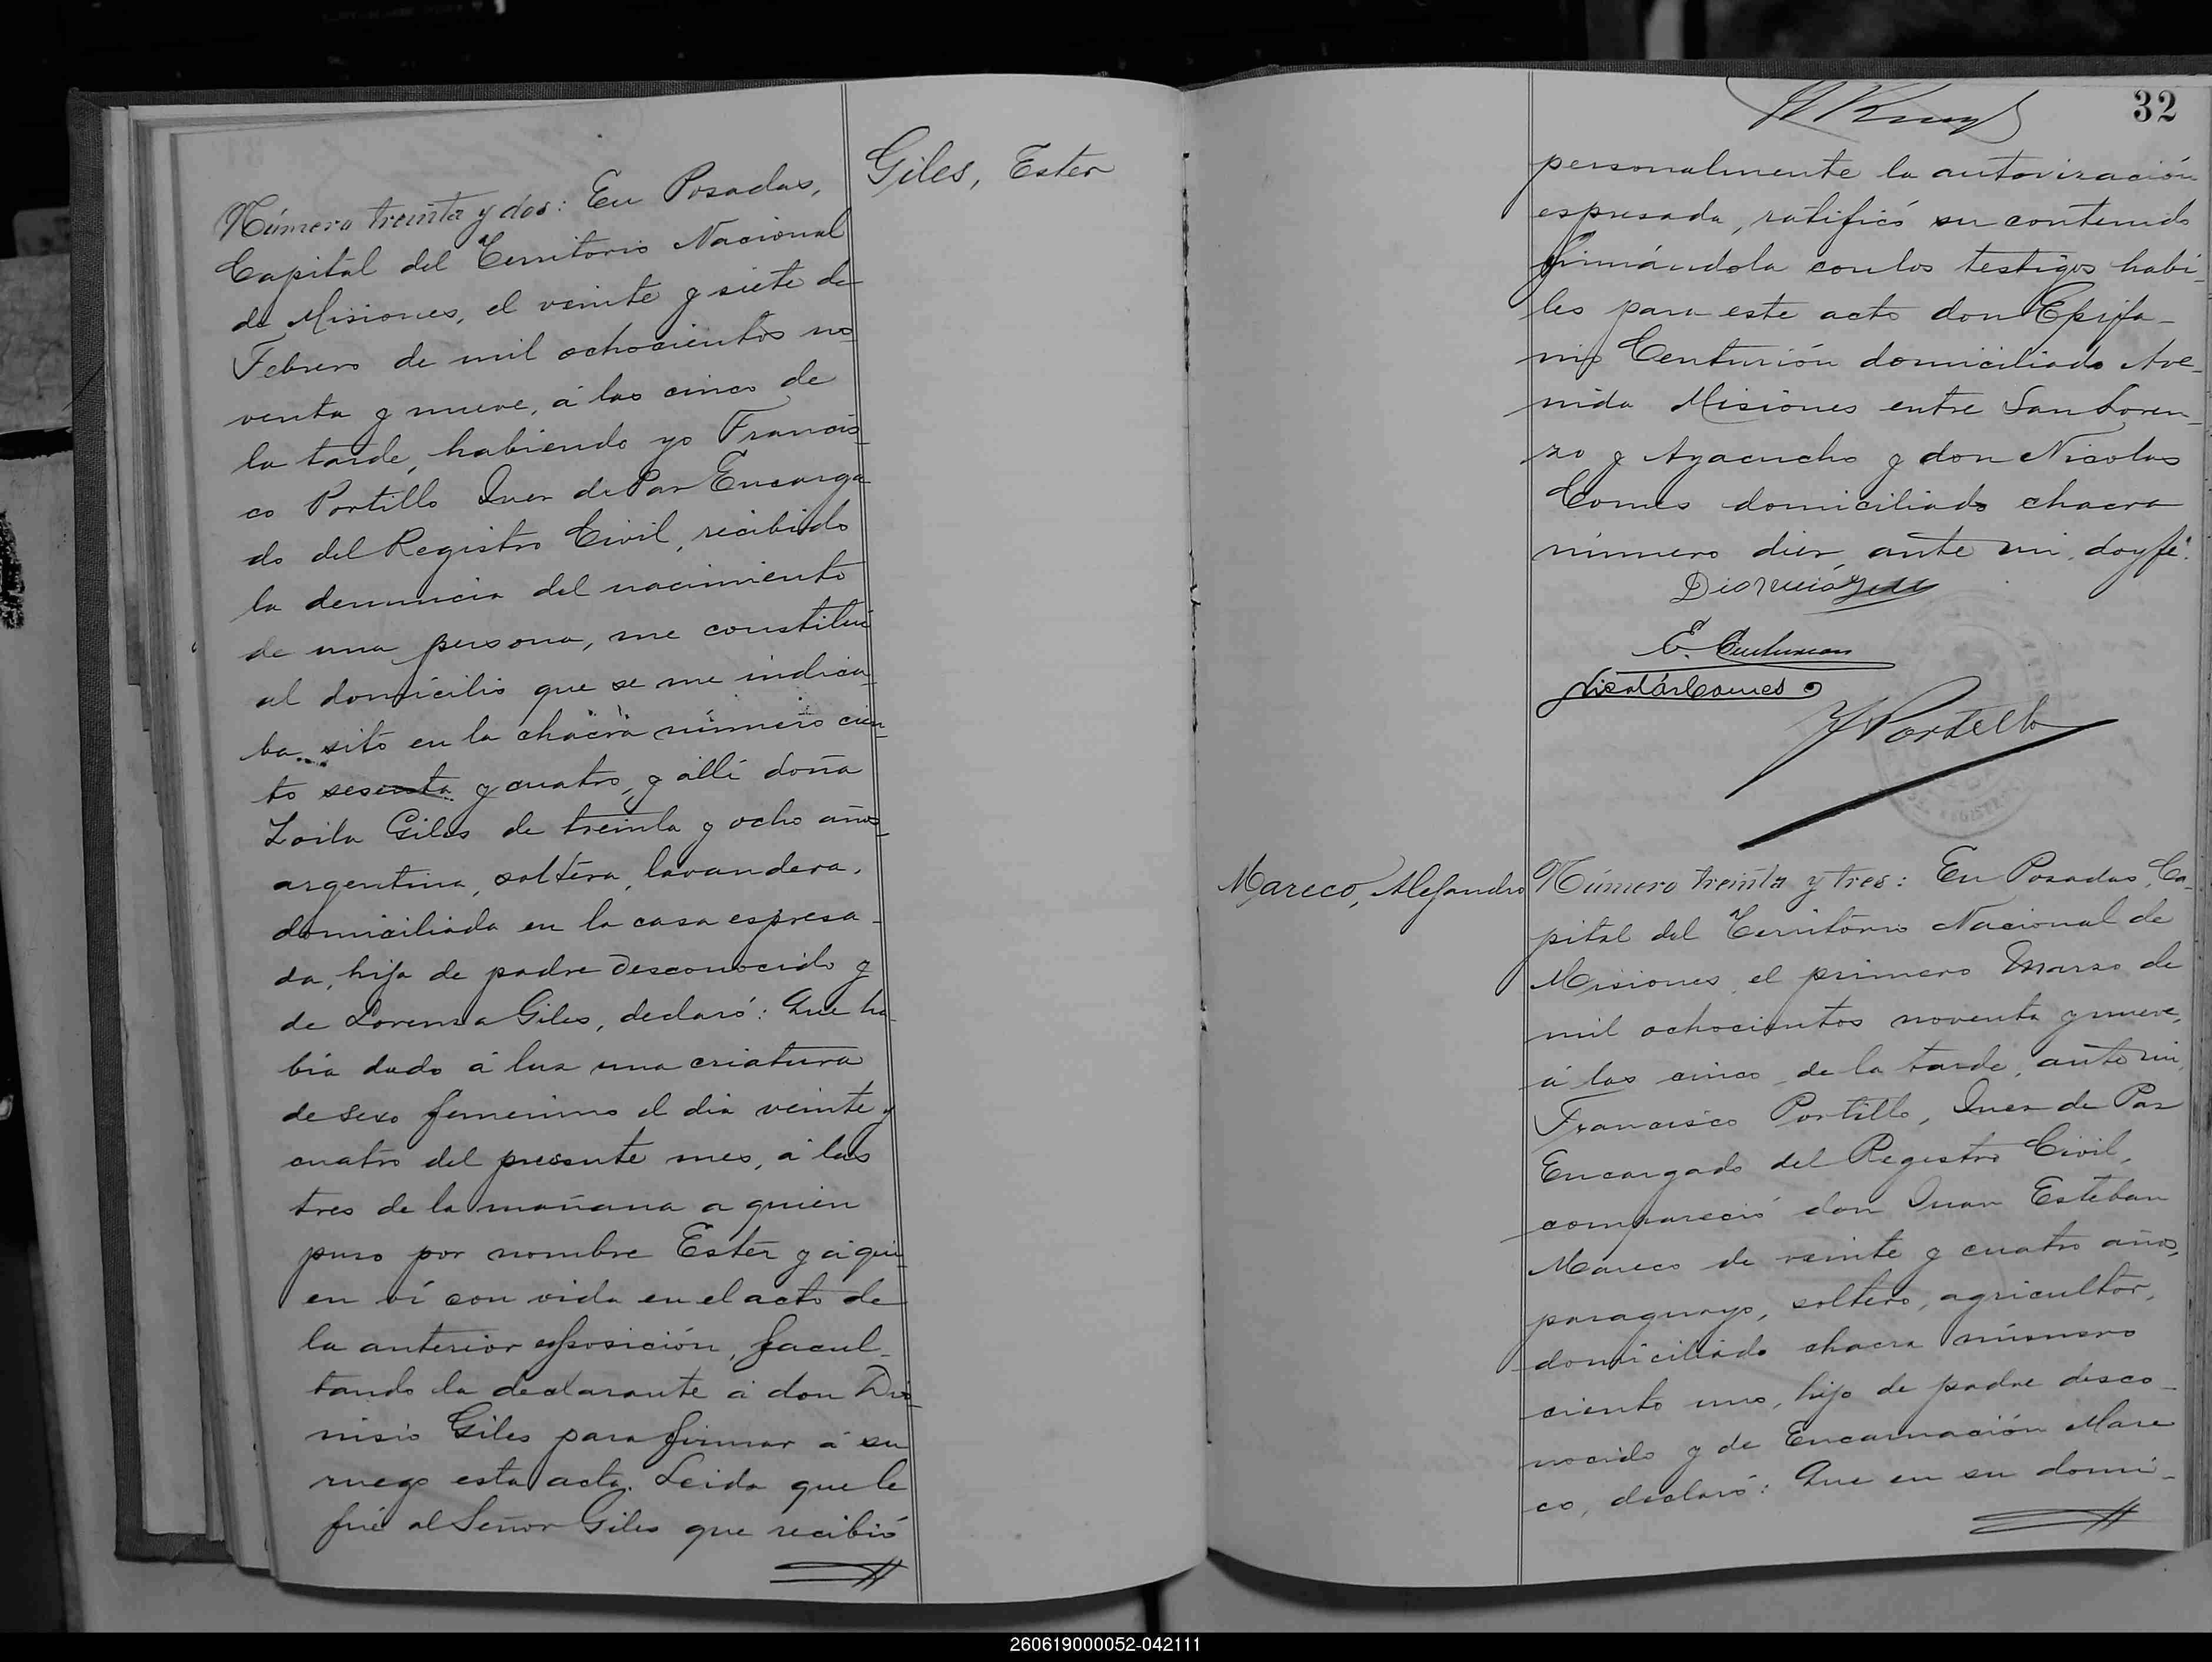 Giles, Ester
Número treinta y dos: En Posadas,
Capital del Territorio Nacional
de Misiones, el veinte y siete de
Febrero de mil ochocientos no-
venta y nueve, á las cinco de
la tarde, habiendo yo Francis-
co Portillo Juez de Paz Encarga-
do del Registro Civil, recibido
la denuncia del nacimiento
de una persona, me constituí
al domicilio que se me indica-
ba sito en la chacra número cien-
to sesenta y cuatro, y allí doña
Zoila Giles de treinta y ocho años,
argentina, soltera, lavandera,
domiciliada en la casa espresa-
da, hija de padre desconocido y
de Lorenza Giles, declaró: Que ha-
bia dado á luz una criatura
de sexo femenino el dia veinte y
cuatro del presente mes, á las
tres de la mañana a quien
puso por nombre Ester y á qui-
en ví con vida en el acto de
la anterior esposición, facul-
tando la declarante á don Dio-
nisio Giles para firmar á su
ruego esta acta. Leida que le
fué al Señor Giles que recibió
32
personalmente la autorización
espresada, ratificó su contenido
firmándola con los testigos hábi-
les para este acto don Epifa-
nio Centurión domiciliado Ave-
nida Misiones entre San Loren-
zo y Ayacucho y don Nicolas
Comes domiciliado chacra
número diez, ante mi, doy fe.
Dionicio Giles
E. Centurion
Nicolás Comes
F Portillo
Mareco, Alejandro
Número treinta y tres: En Posadas, Ca-
pital del Territorio Nacional de
Misiones, el primero Marzo de
mil ochocientos noventa y nueve,
á las cinco de la tarde, ante mi,
Francisco Portillo, Juez de Paz
Encargado del Registro Civil,
compareció don Juan Esteban
Mareco de veinte y cuatro años,
paraguayo, soltero, agricultor,
domiciliado chacra número
ciento uno, hijo de padre desco-
nocido y de Encarnación Mare
co, declaró: Que en su domi-
260619000052-042111